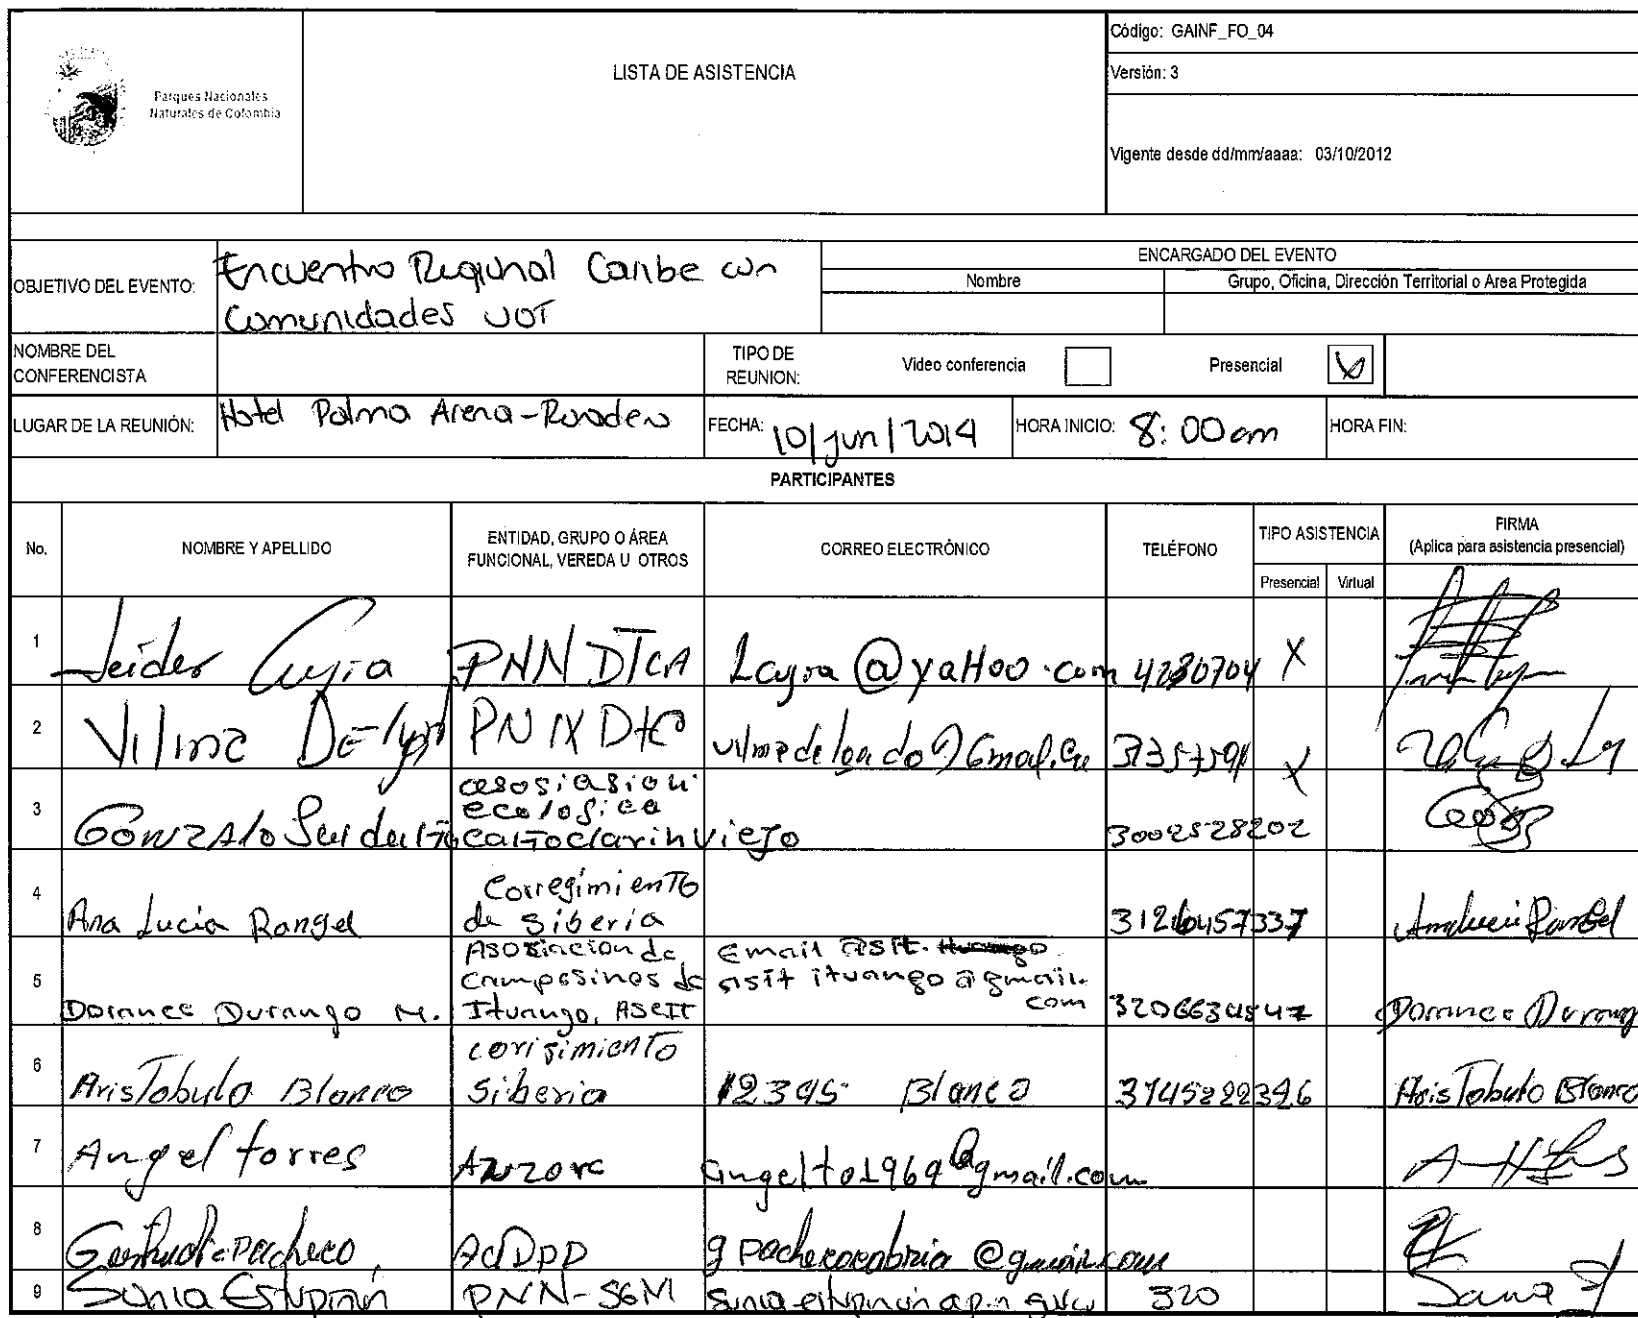 Parques Nacionales
Naturales de Colombia
LISTA DE ASISTENCIA
Código: GAINF_FO_04
Versión: 3
Vigente desde dd/mm/aaaa: 03/10/2012
OBJETIVO DEL EVENTO:
Encuentro Regional Caribe con
Comunidades UOT
ENCARGADO DEL EVENTO
Nombre
Grupo, Oficina, Dirección Territorial o Area Protegida
NOMBRE DEL
CONFERENCISTA
TIPO DE
REUNION:
Video conferencia
Presencial
X
LUGAR DE LA REUNIÓN:
Hotel Palma Arena - Rodadero
FECHA: 10/jun/2014
HORA INICIO: 8:00 am
HORA FIN:
PARTICIPANTES
No.
NOMBRE Y APELLIDO
ENTIDAD, GRUPO O ÁREA
FUNCIONAL, VEREDA U OTROS
CORREO ELECTRÓNICO
TELÉFONO
TIPO ASISTENCIA
Presencial Virtual
FIRMA
(Aplica para asistencia presencial)
1 Leider PNN DTCA @yaHoo.com 4230704 X
2 Vilma X
3 Gonzalo
asosiasion
ecologica
cañoclarin viejo
3002528202
4 Ana Lucia Rangel
Corregimiento
de Siberia
3126457337
Ana Lucia Rangel
5 Dorance Durango M.
Asosiacion de
campesinos de
Ituango, Ascit
Email asit.
asit ituango @gmail.
com
Dorance Durang
6 Aristobulo Blanco
corisimiento
Siberia
12395 Blanco
3145222396
Aristobulo Blanco
7 Angel torres Anzorc angelto1969@gmail.com
8 Pacheco
9 Sonia Estupiñán PNN-SGM 320